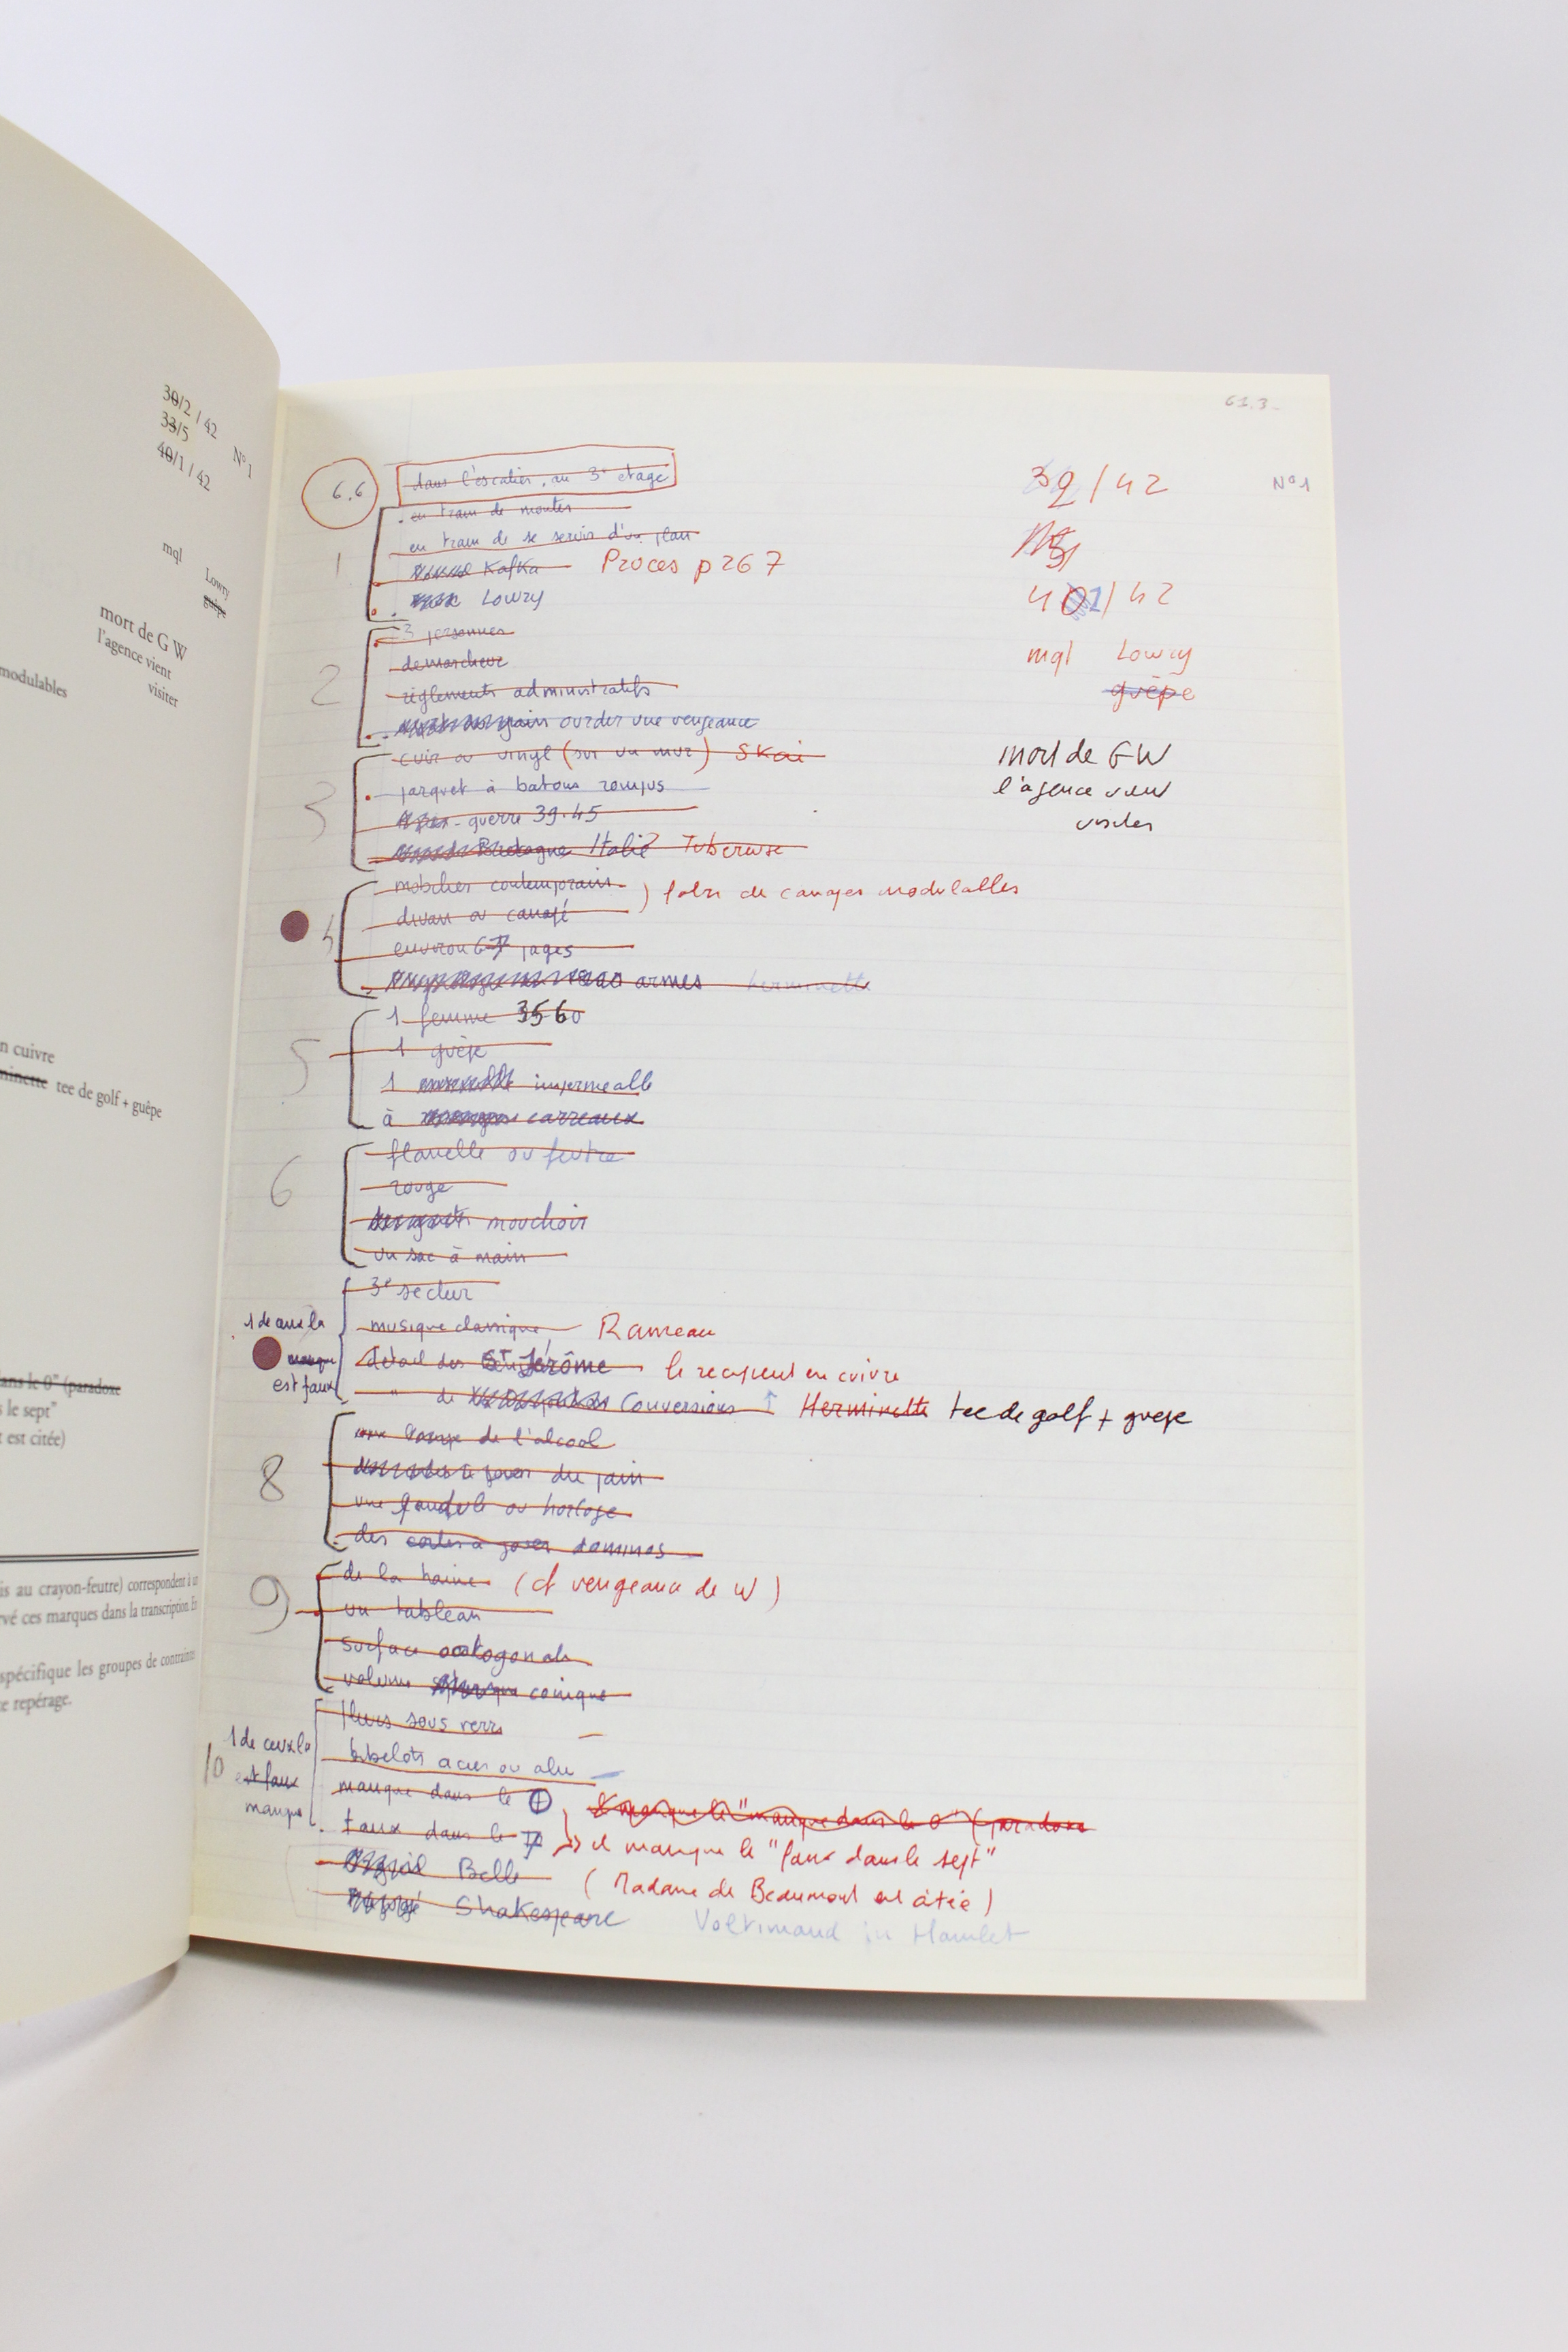 30/2 / 42 N° 1
33/5
40/1 / 42
mql Lowry
guêpe
mort de G W
l'agence vient
visiter
modulables
n cuivre
minette tee de golf + guêpe
ans le 0" (paradoxe
s le sept"
t est citée)
is au crayon-feutre) correspondent à
rvé ces marques dans la transcription.
spécifique les groupes de contraintes
e repérage.
61.3
6.6 dans l'escalier, au 3e etage 32/42 N°1
en train de monter
1 en train de se servir d'un plan
Kafka Proces p 267
Lowry 401/42
3 personnes mql Lowry
2 demarcheur guêpe
règlements administratifs
ourdir une vengeance
cuir ou vinyl (sur un mur) Skai mort de GW
3 parquet à batons rompus l'agence vient
guerre 39.45 visiter
Bretagne Italie? Tubereuse
mobilier contemporain
4 divan ou canapé ) salon de canapes modulables
environ 6 pages
armes herminette
1 femme 35 60
5 1 guêpe
1 impermeable
à carreaux
flanelle ou feutre
6 rouge
mouchoir
un sac à main
3e secteur
1 de ceux la musique classique Rameau
manque détail des St Jérôme le recipient en cuivre
est faux " de Conversions ↑ Herminette tee de golf + guepe
de l'alcool
8 du pain
une pendule ou horloge
des cartes à jouer dominos
de la haine (cf vengeance de W)
9 un tableau
surface octogonale
volume conique
fleurs sous verre
1 de ceux la bibelots acier ou alu
10 est faux manque dans le
manque faux dans le 7 il manque le "manque dans le 0" (paradoxe
→ il manque le "faux dans le sept"
Belle (Madame de Beaumont est citée)
Shakespeare Voltimand in Hamlet